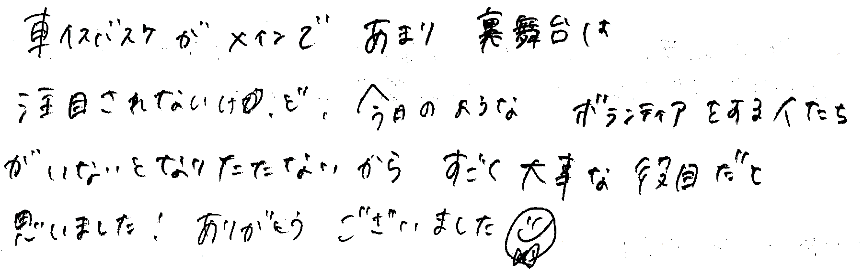 車イスバスケがメインで あまり 裏舞台は
注目されないけど、今日のような ボランティアをする人たち
がいないとなりたたないから すごく大事な役目だと
思いました！ ありがとう ございました